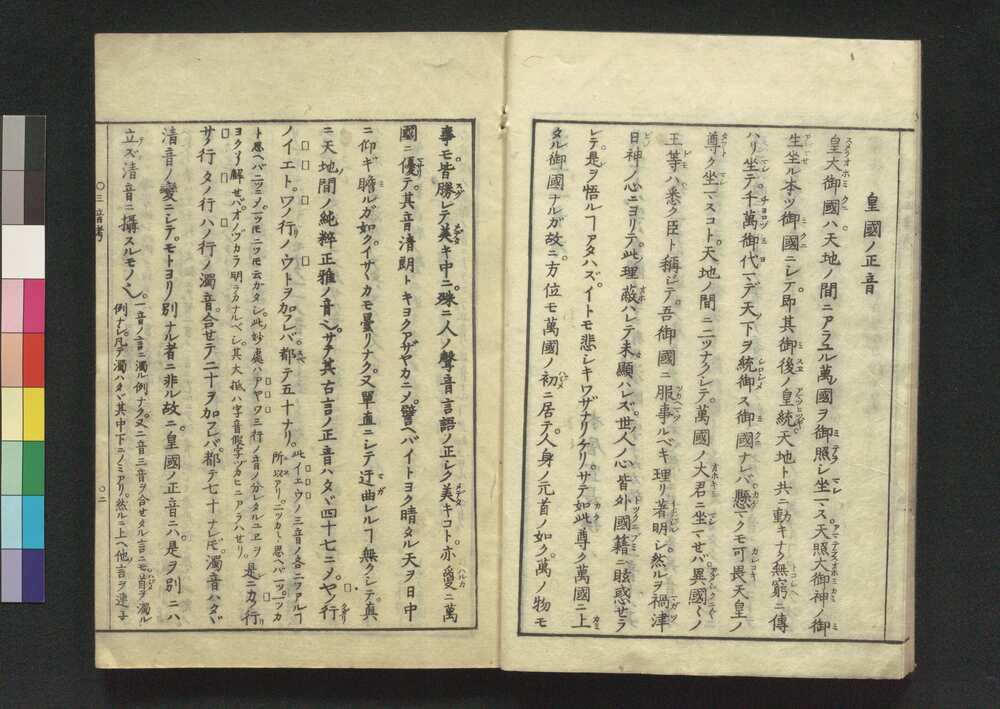 皇國ノ正音
皇大御國ハ天地ノ間ニアラユル萬國ヲ御照シ坐マス天照大御神ノ御
生坐ル本ツ御國ニシテ即其御後ノ皇統天地ト共ニ動キナク無窮ニ傳
ハリ坐テ千萬御代マデ天下ヲ統御ス御國ナレバ懸マクモ可畏天皇ノ
尊ク坐マスコト天地ノ間ニ二ツナクシテ萬國ノ大君ニ坐マセバ異國〱ノ
王等ハ悉ク臣ト稱シテ吾御國ニ服事ルベキ理リ著明シ然ルヲ禍津
日神ノ心ニヨリテ此理蔽ハレテ未顯ハレズ世人ノ心皆外國籍ニ眩惑セラ
レテ是ヲ悟ルヿアタハズイトモ悲シキワザナリケリサテ如此尊ク萬國ニ上
タル御國ナルガ故ニ方位モ萬國ノ初ニ居テ人身ノ元首ノ如ク萬ノ物モ
事モ皆勝レテ美キ中ニ殊ニ人ノ聲音言語ノ正シク美キコト亦夐ニ萬
國ニ優テ其音清朗トキヨクアザヤカニメ譬ヘバイトヨク晴タル天ヲ日中
ニ仰ギ瞻ルガ如クイサヽカモ曇リナク又單直ニシテ迂曲レルヿ無クシテ真
ニ天地間ノ純粹正雅ノ音也サテ其古言ノ正音ハタヾ四十七ニメヤノ行
ノイエトワノ行ノウトヲ加フレバ都テ五十ナリ此イエウノ三音ノ各二ツアルヿ所以アリ二ツカト思ヘバ一ツ一ツカ
ト思ヘバ二ツニメ一ツトモ二ツトモ云ガタシ此妙處ハアヤワ三行ノ音ノ分レタルユヱヲ
ヨクサトリ解セバオノヅカラ明ラカナルベシ其大抵ハ字音假字ヅカヒニアラハセリ是ニカノ行
サノ行タノ行ハノ行ノ濁音合セテ二十ヲ加フレバ都テ七十ナレトモ濁音ハタヾ
清音ノ變ニシテモトヨリ別ナル者ニ非ル故ニ皇國ノ正音ニハ是ヲ別ニハ
立ズ清音ニ攝スルモノ也一音ノ言ニ濁ル例ナク又二音三音ヲ合セタル言ニモ首ヲ濁ル
例ナシ凡テ濁ハタヾ其中下ニノミアリ然ルニ上ヘ他ノ言ヲ連子
〇三音考
〇二